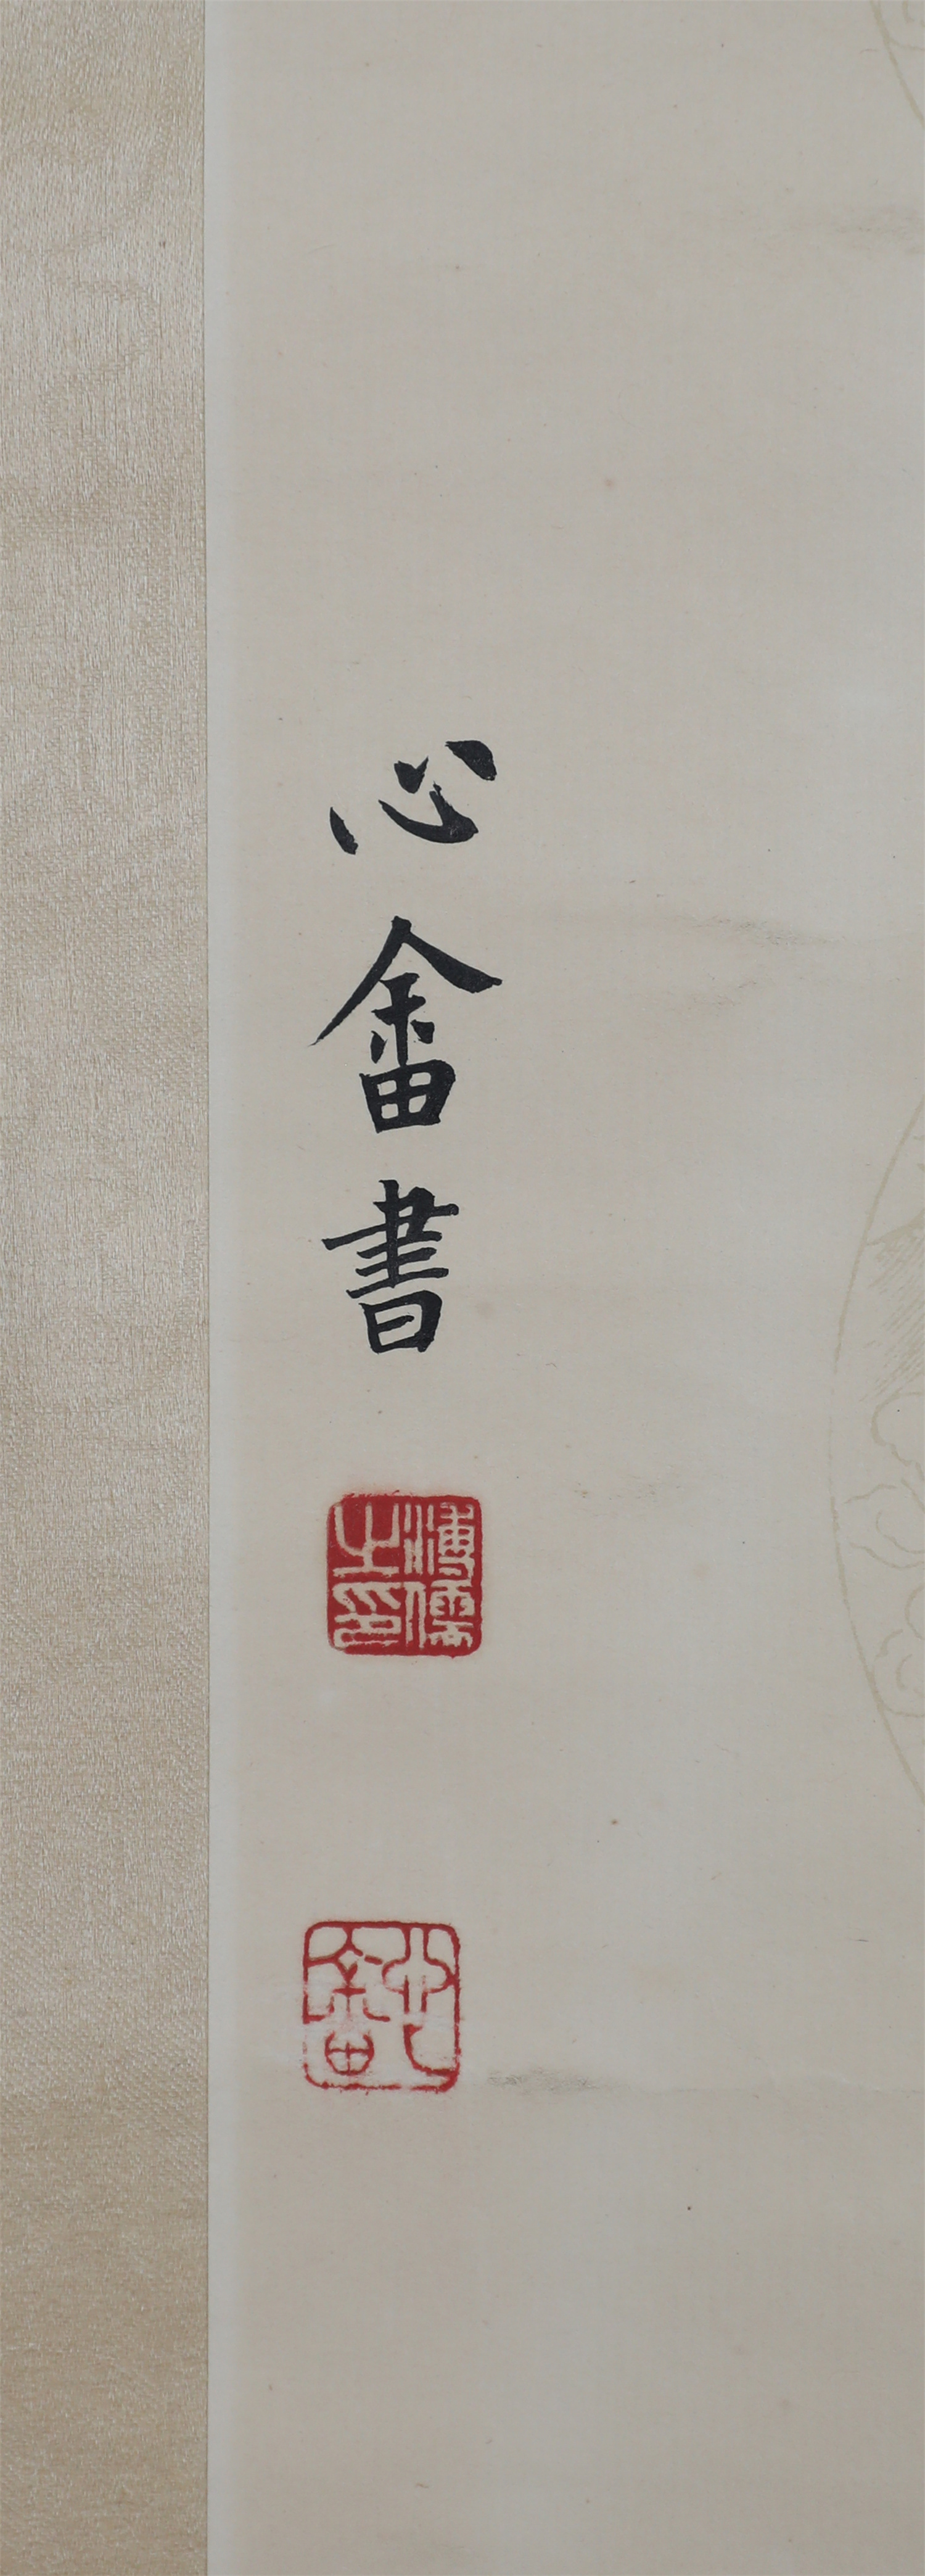 心畬書
溥儒之印
心畬